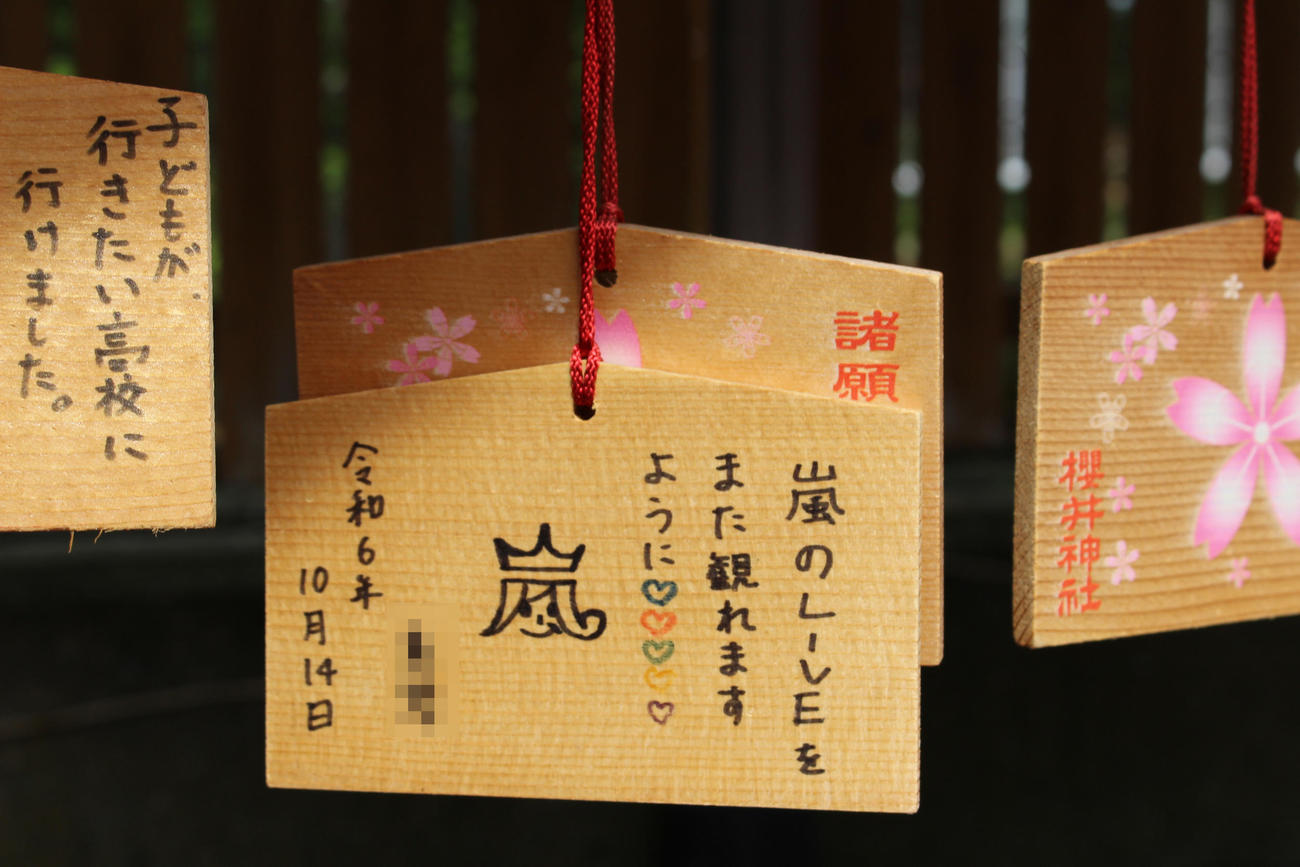 子どもが、
行きたい高校に
行けました。
諸願
嵐のLIVEを
また観れます
ように
嵐
令和6年
10月14日
櫻井神社